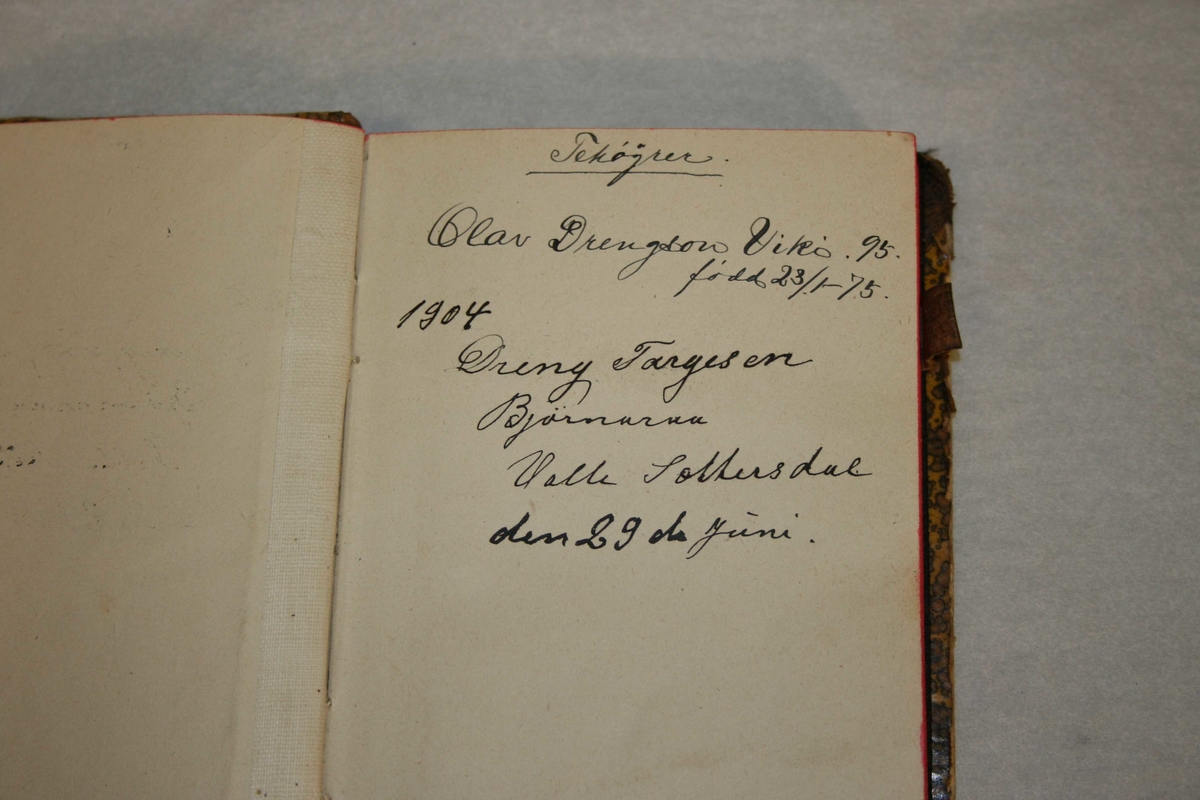 Tehöyrer.
Olav Drengson Viki. 95.
född 23/1-75.
1904
Dreng Targesen
Björnaraa
Valle Sættersdal
den 29 de Juni.